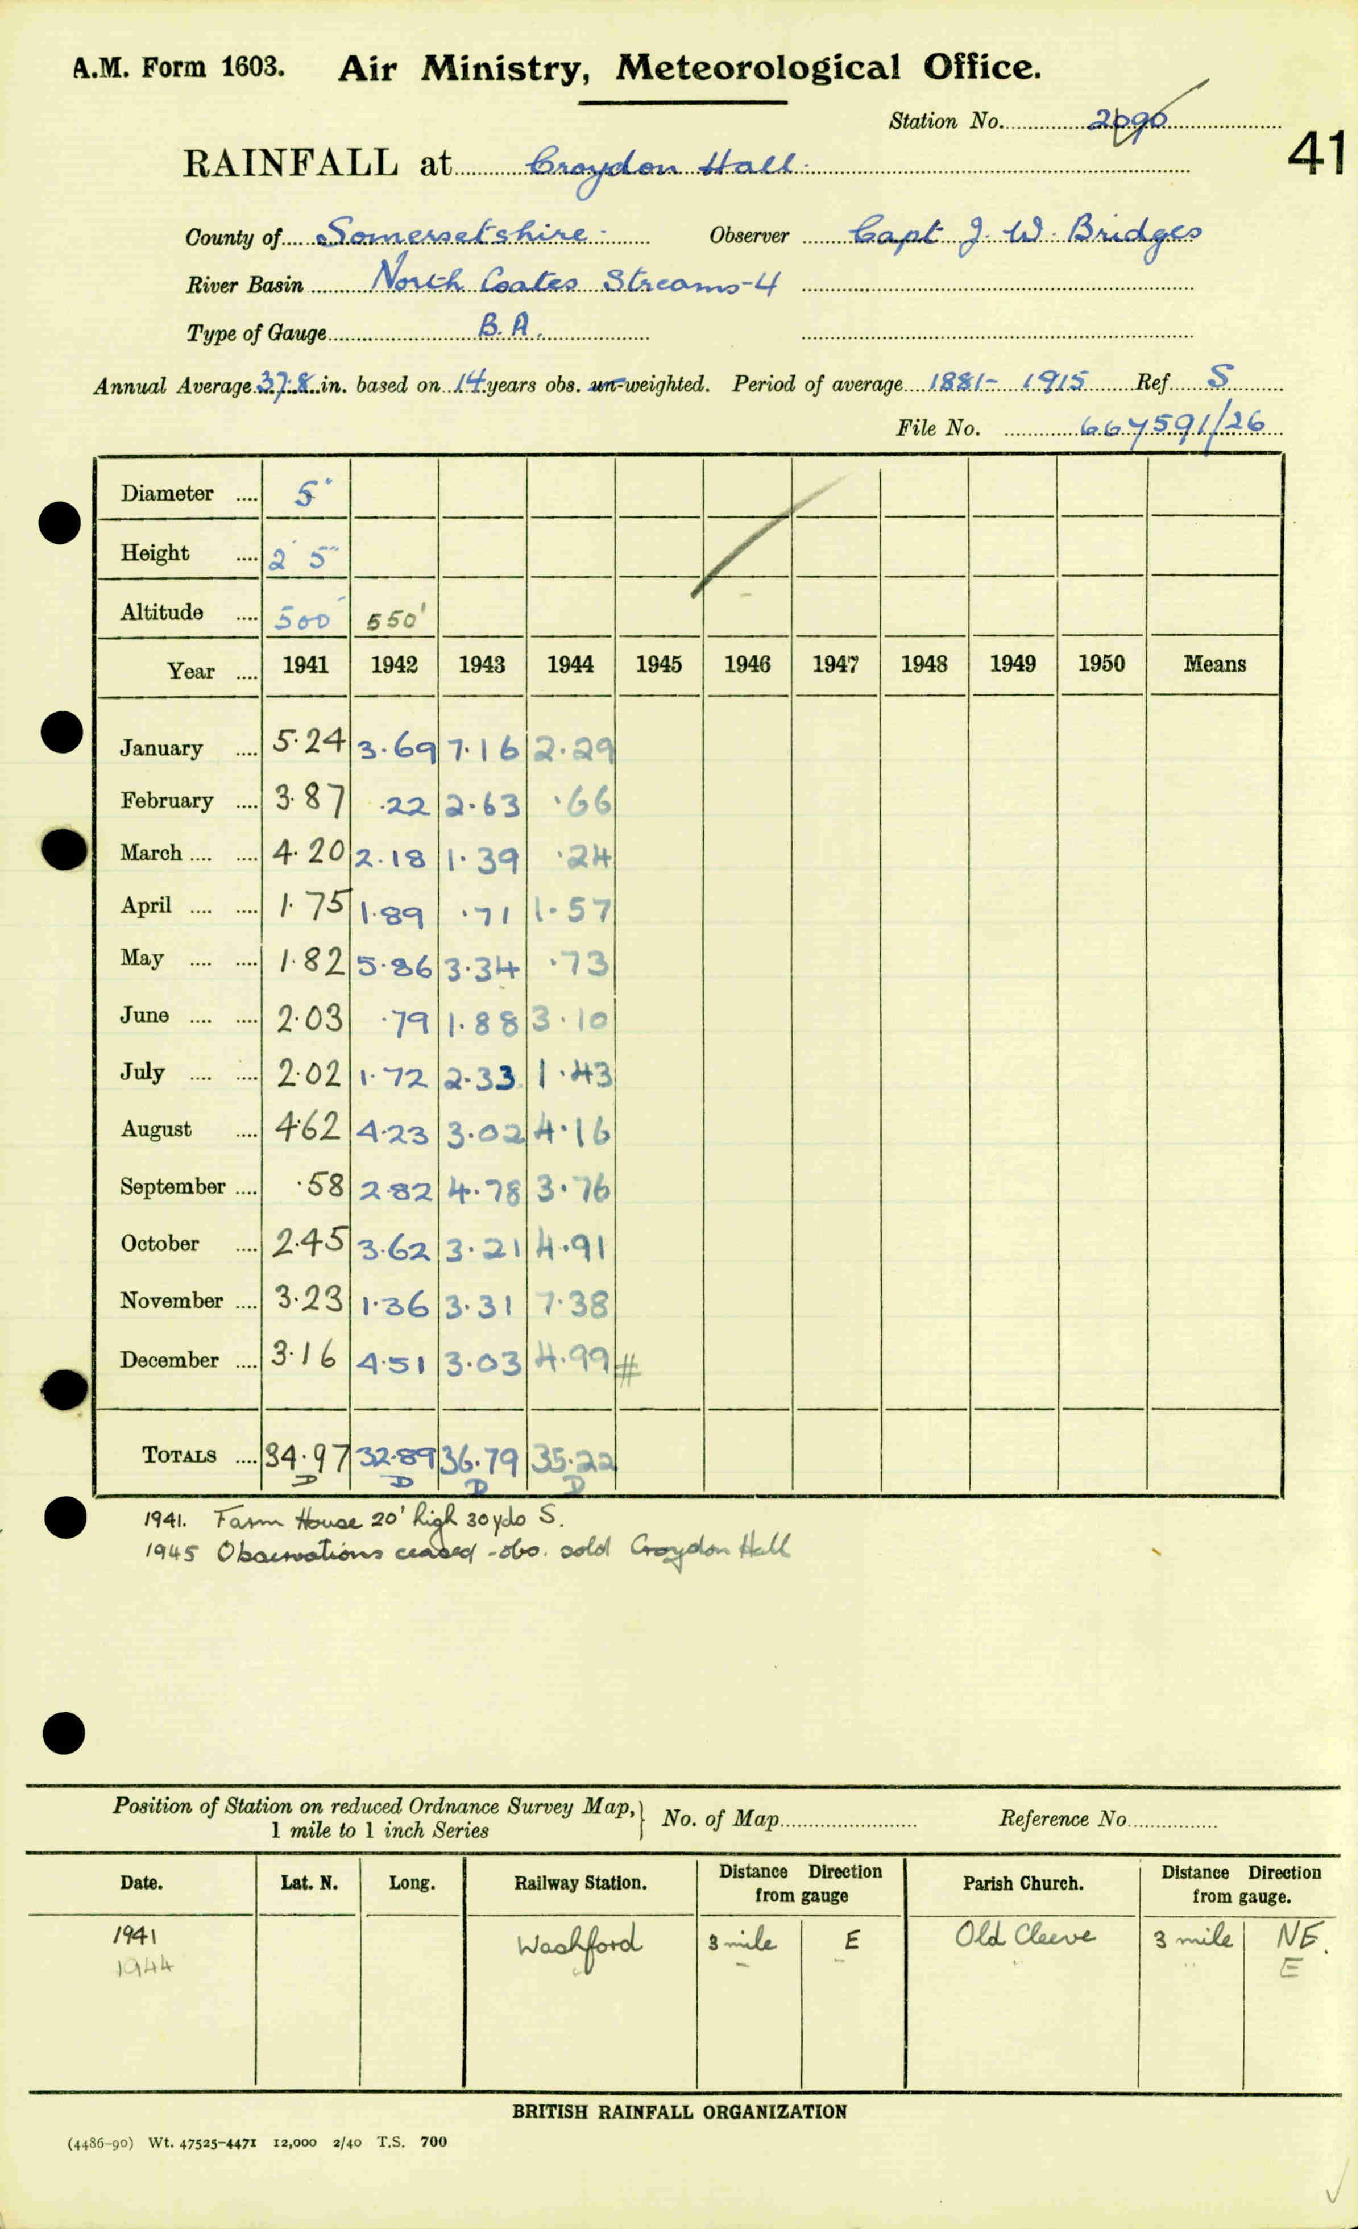 A.M. Form 1603. Air Ministry, Meteorological Office.
Station No. 2090
41
RAINFALL at Croydon Hall.
County of Somersetshire. Observer Capt J. W. Bridges
River Basin North Coates Streams-4
Type of Gauge B.A.
Annual Average 37.8 in. based on 14 years obs. un-weighted. Period of average 1881- 1915 Ref. S
File No. 667591/26
Diameter .... 5"
Height .... 2' 5"
Altitude .... 500' 550'
Year .... 1941 1942 1943 1944 1945 1946 1947 1948 1949 1950 Means
January .... 5.24 3.69 7.16 2.29
February .... 3.87 .22 2.63 .66
March .... .... 4.20 2.18 1.39 .24
April .... .... 1.75 1.89 .71 1.57
May .... .... 1.82 5.86 3.34 .73
June .... .... 2.03 .79 1.88 3.10
July .... .... 2.02 1.72 2.33 1.43
August .... 4.62 4.23 3.02 4.16
September .... .58 2.82 4.78 3.76
October .... 2.45 3.62 3.21 4.91
November .... 3.23 1.36 3.31 7.38
December .... 3.16 4.51 3.03 4.99 #
TOTALS .... 34.97 32.89 36.79 35.22
D D D D
1941. Farm House 20' high 30 yds S.
1945 Observations ceased - obs. sold Croydon Hall
Position of Station on reduced Ordnance Survey Map, } No. of Map Reference No.
1 mile to 1 inch Series
Date. Lat. N. Long. Railway Station. Distance Direction from gauge Parish Church. Distance Direction from gauge.
1941 Washford 3 mile E Old Cleeve 3 mile NE.
1944 - - " " E
BRITISH RAINFALL ORGANIZATION
(4486-90) Wt. 47525-4471 12,000 2/40 T.S. 700